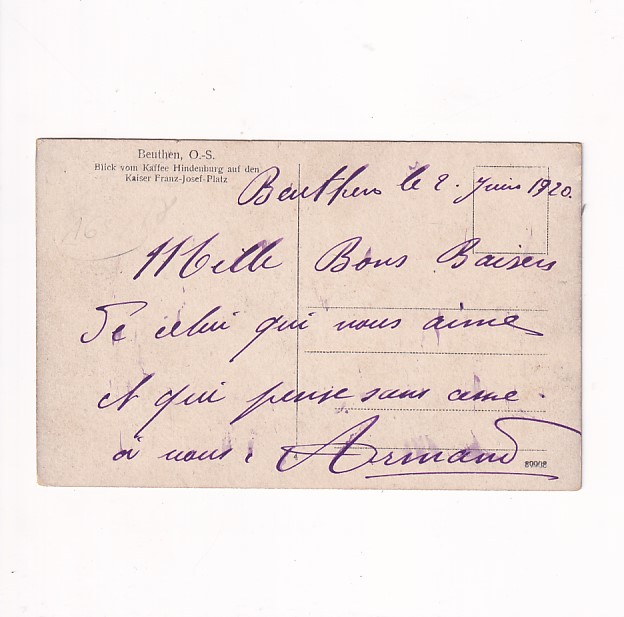 Beuthen, O.-S.
Blick vom Kaffee Hindenburg auf den
Kaiser Franz-Josef-Platz
Beuthen le 2. Juin 1920.
Mille Bons Baisers
De celui qui vous aime
et qui pense sans cesse.
à vous.
Armand
89908